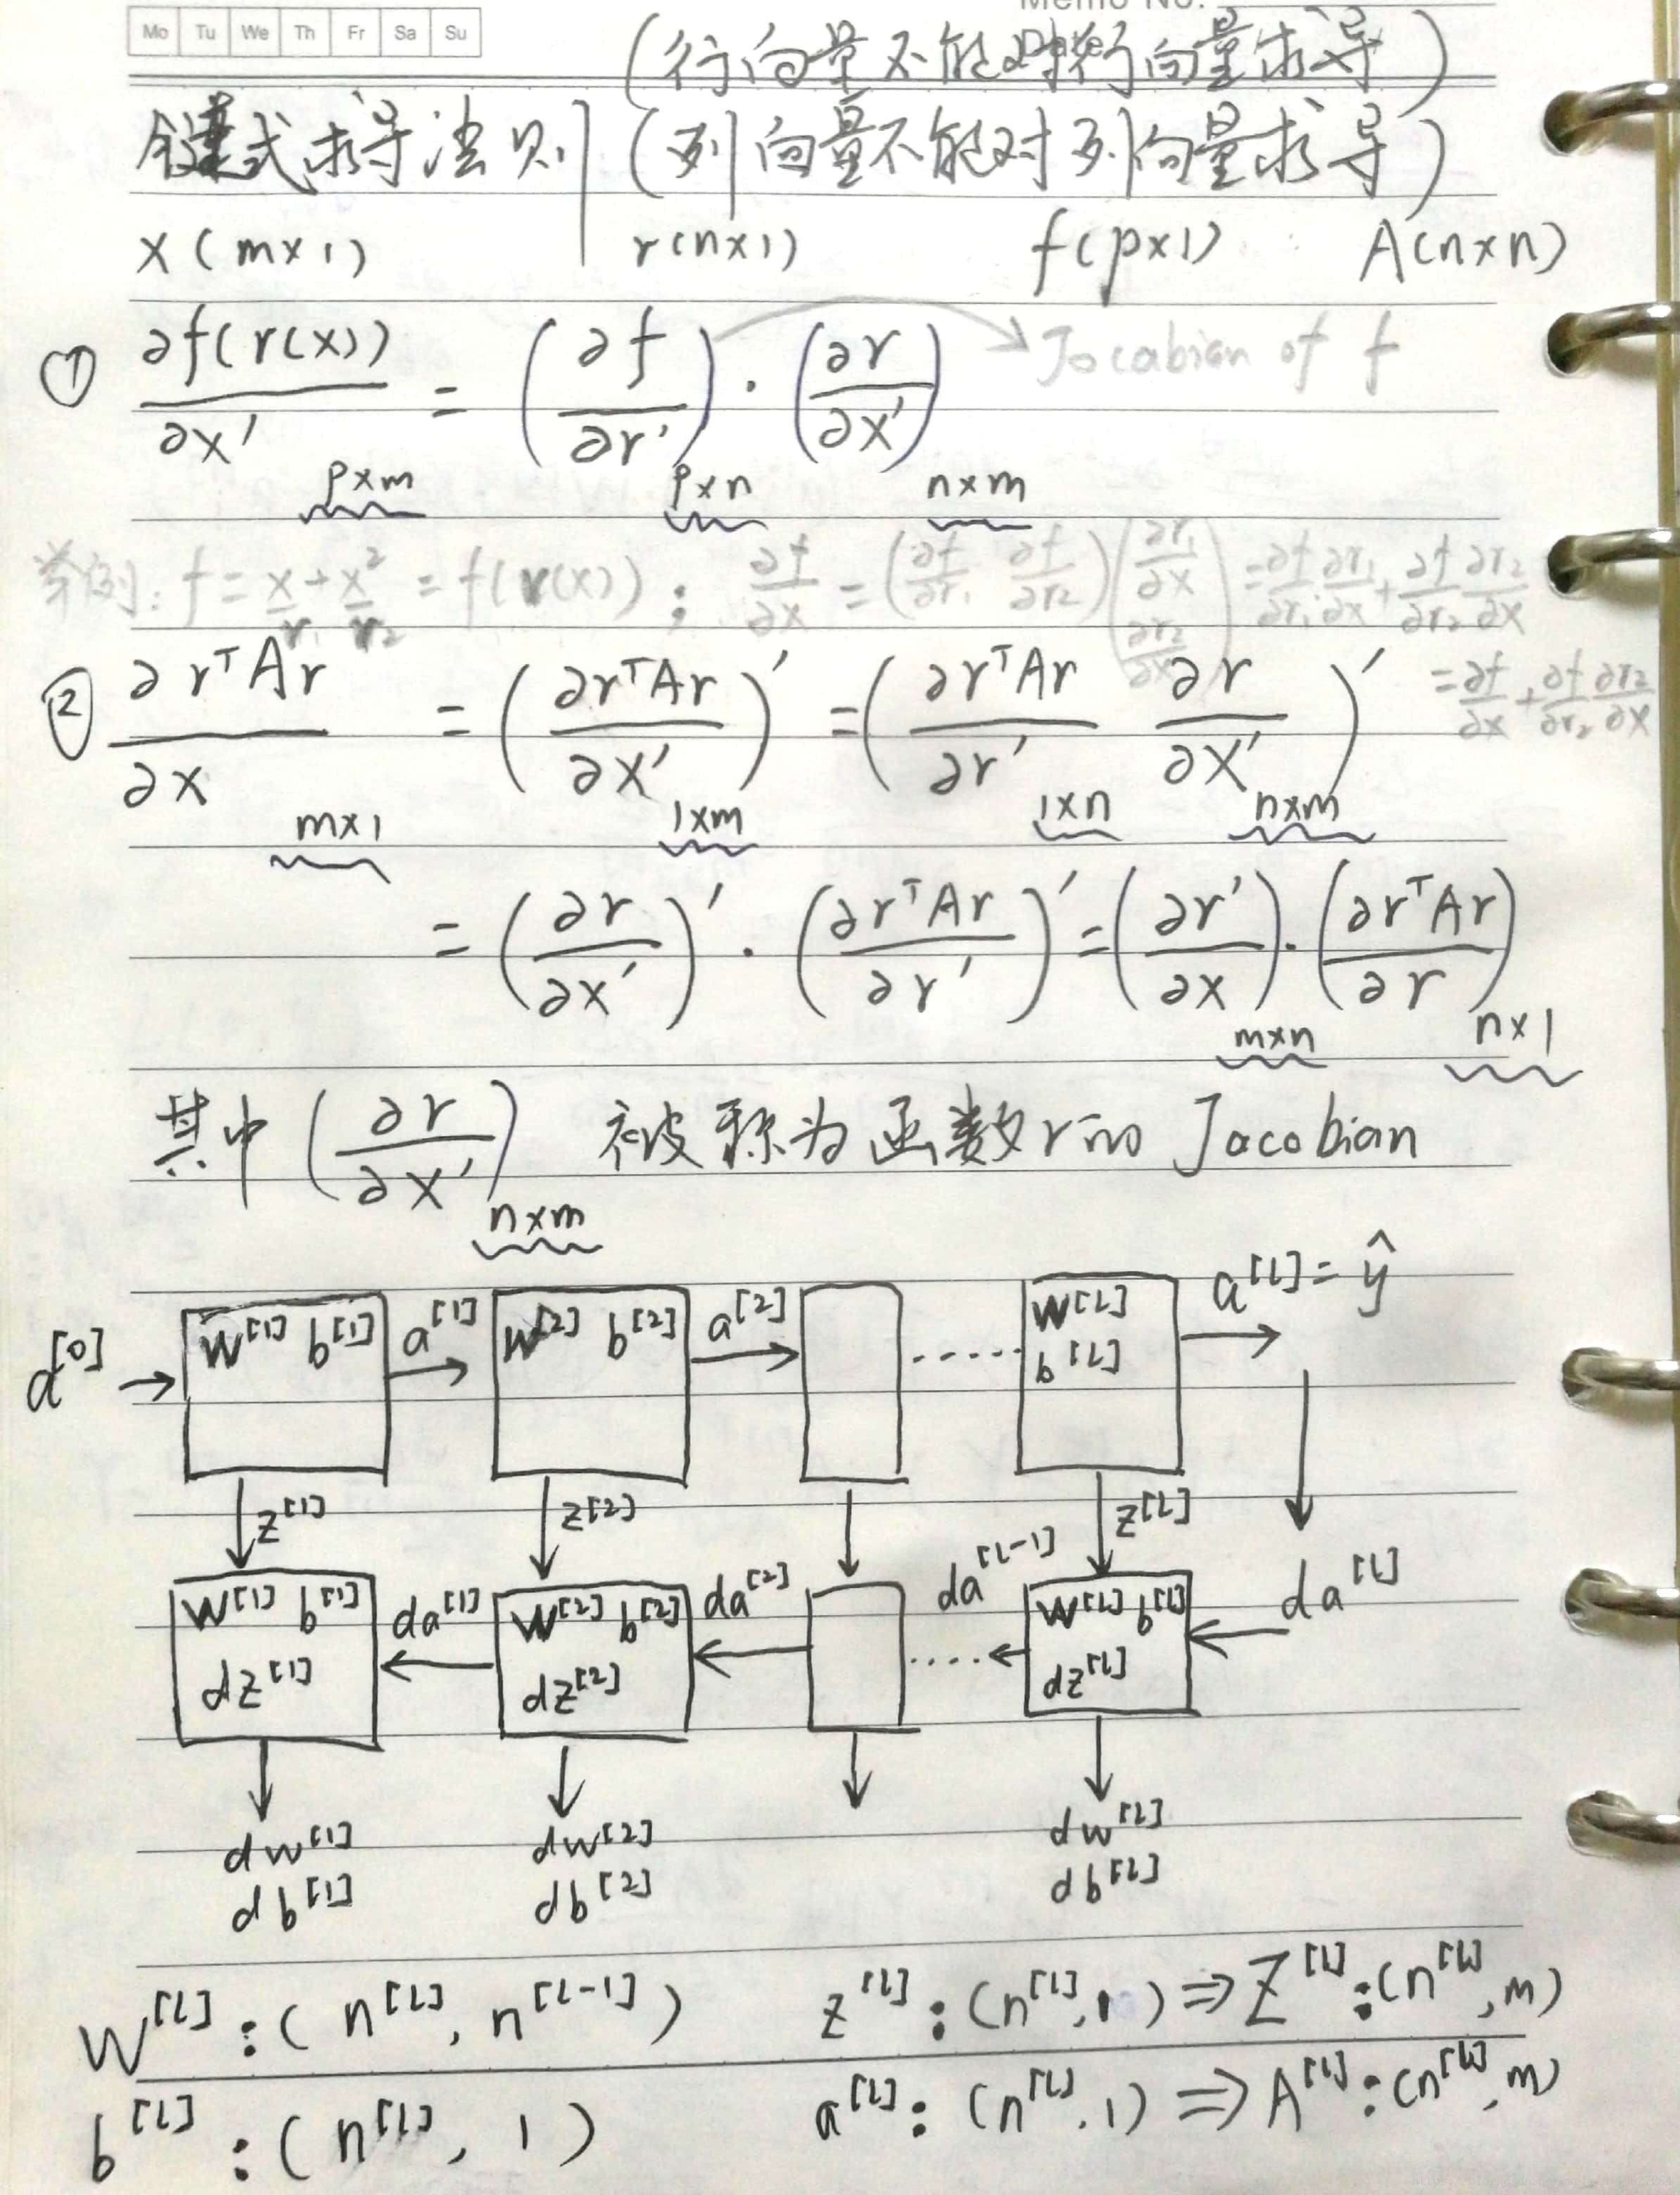 Mo Tu We Th Fr Sa Su
Memo No.
Date
(行向量不能对行向量求导)
链式求导法则 | (列向量不能对列向量求导)
x(m×1) r(n×1) f(p×1) A(n×n)
① ∂f(r(x))/∂x' = (∂f/∂r') · (∂r/∂x') → Jocabian of f
p×m p×n n×m
举例: f = x + x² = f(r(x)) ; ∂f/∂x = (∂f/∂r₁ ∂f/∂r₂)(∂r₁/∂x ∂r₂/∂x) = ∂f/∂r₁ ∂r₁/∂x + ∂f/∂r₂ ∂r₂/∂x
r₁ r₂
= ∂f/∂x + ∂f/∂r₂ ∂r₂/∂x
② ∂rᵀAr/∂x = (∂rᵀAr/∂x')' = (∂rᵀAr/∂r' ∂r/∂x')'
m×1 1×m 1×n n×m
= (∂r/∂x')' · (∂rᵀAr/∂r')' = (∂r'/∂x) · (∂rᵀAr/∂r)
m×n n×1
其中 (∂r/∂x') 被称为函数r的 Jacobian
n×m
a^[0] → W^[1] b^[1] a^[1] → W^[2] b^[2] a^[2] → ...... W^[L] b^[L] → a^[L] = ŷ
z^[1] z^[2] z^[L]
W^[1] b^[1] dz^[1] ← da^[1] W^[2] b^[2] dz^[2] ← da^[2] ← ..... da^[L-1] ← W^[L] b^[L] dz^[L] ← da^[L]
dw^[1] dw^[2] dw^[L]
db^[1] db^[2] db^[L]
W^[L] : (n^[L], n^[L-1]) z^[L] : (n^[L], 1) ⇒ Z^[L] : (n^[L], m)
b^[L] : (n^[L], 1) a^[L] : (n^[L], 1) ⇒ A^[L] : (n^[L], m)